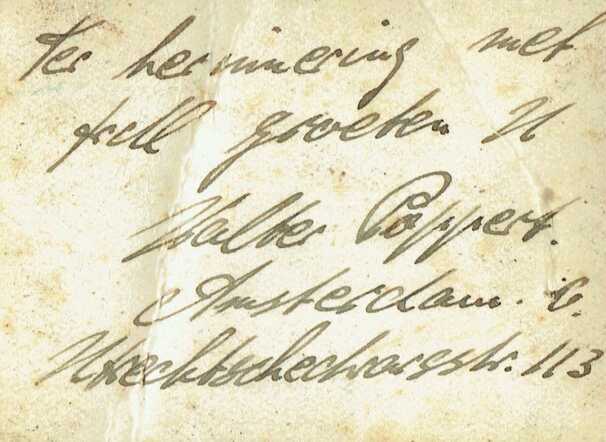 ter herinnering met
frdl groeten U
Walter Poppert.
Amsterdam. C.
Utrechtschedwarsstr. 113